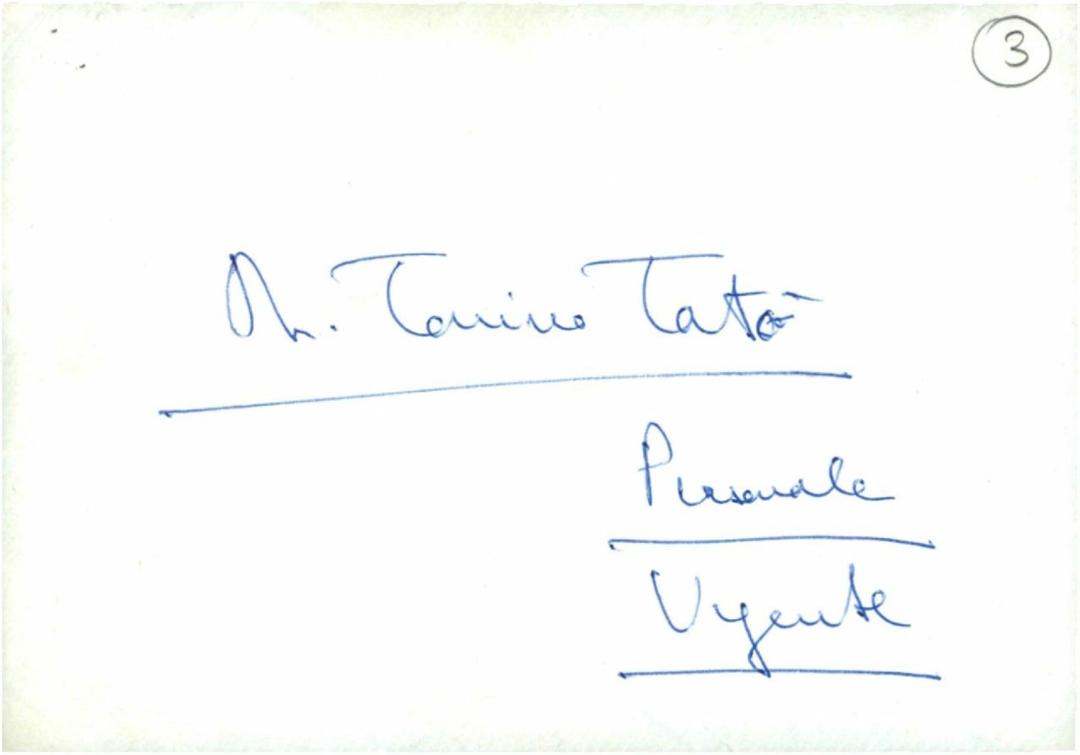 3
Dr. Tonino Tatò
Personale
Urgente